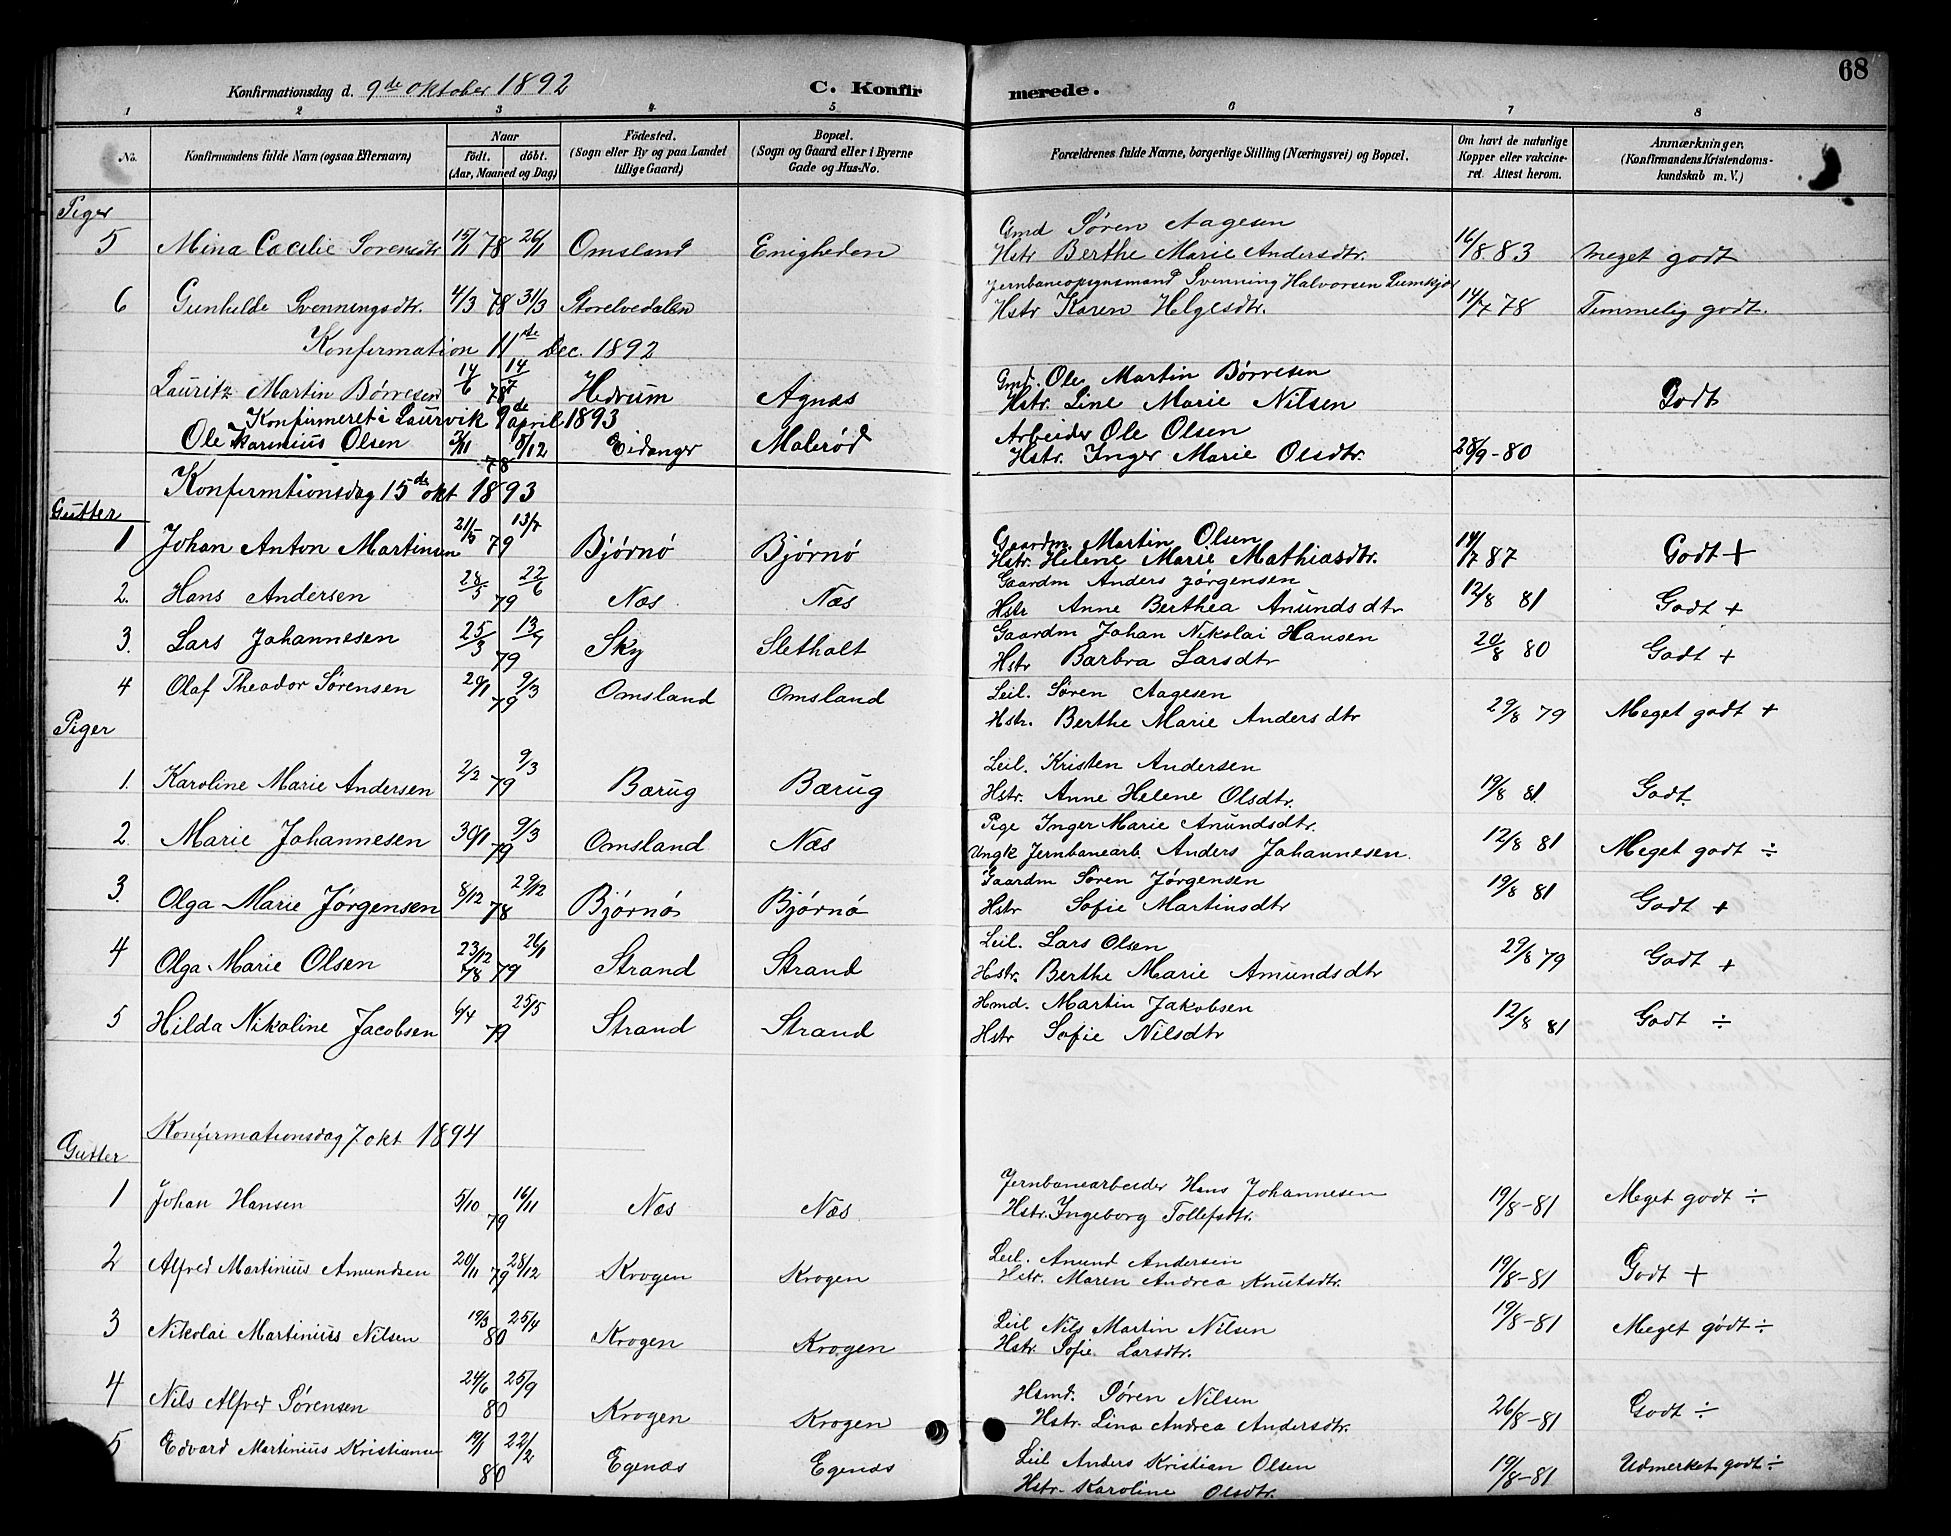 68
Konfirmationsdag d. 9de Oktober 1892 C. Konfirmerede.
1 2 3 4 5 6 7 8
No. Konfirmandens fulde Navn (ogsaa Efternavn) Naar födt. döbt. (Aar, Maaned og Dag) Födested. (Sogn eller By og paa Landet tillige Gaard) Bopæl. (Sogn og Gaard eller i Byerne Gade og Hus-No. Forældrenes fulde Navne, borgerlige Stilling (Næringsvei) og Bopæl. Om havt de naturlige Kopper eller vakcineret. Attest herom. Anmærkninger. (Konfirmandens Kristendomskundskab m. V.)
Piger
5 Mina Cæcilie Sorensdtr 15/11 78 26/11 Omsland Enigheden Gmd Søren Aagesen 16/8.83 Meget godt
Hstr Berthe Marie Andersdtr.
6 Gunhilde Svenningsdtr. 4/3 78 31/3 Storelvedalen Jernbaneopsynsmand Svenning Halvorsen 14/7 78 Temmelig godt.
Hstr Karen Helgesdtr.
Konfirmation 11te Dec. 1892
Lauritz Martin Børresen 14/6 78 14/7 Hedrum Agnæs Gmd. Ole Martin Børresen Godt
Hstr. Line Marie Nilsen
Konfirmeret i Laurvik 9de april 1893
Ole Marinius Olsen 78 8/12 Eidanger Malerød Arbeider Ole Olsen 28/9-80
Hstr. Inger Marie Olsdtr.
Konfirmtionsdag 15de okt 1893
Gutter
1 Johan Anton Martinsen 21/5 79 13/7 Bjørnø Bjørnø Gaardm. Martin Olsen 14/7 87 Godt +
Hstr. Helene Marie Mathiasdtr.
2. Hans Andersen 28/5 79 22/6 Næs Næs Gaardm Anders Jørgensen 12/8 81 Godt +
Hstr Anne Berthea Anundsdtr
3. Lars Johannesen 25/3 79 13/4 Sky Sletholt Gaardm Johan Nikolai Hansen 20/8 80 Godt +
Hstr Barbra Larsdtr
4 Olaf Theodor Sørensen 20/1 79 9/3 Omsland Omsland Leil. Søren Aagesen 29/8 79 Meget godt +
Hstr. Berthe Marie Andersdtr
Piger
1. Karoline Marie Andersen 2/2 79 9/3 Bærug Bærug Leil. Kristen Andersen 19/8 81 Godt
Hstr. Anne Helene Olsdtr.
2. Marie Johannesen 30/1 79 9/3 Omsland Næs Pige Inger Marie Anundsdtr. 12/8 81 Meget godt ÷
Ungk Jernbanearb. Anders Johannesen.
3. Olga Marie Jørgensen 8/12 78 29/12 Bjørnø Bjørnø Gaardm Søren Jørgensen 19/8 81 Godt +
Hstr Sofie Martinsdtr
4 Olga Marie Olsen 23/12 78 79 26/1 Strand Strand Leil. Lars Olsen 29/8 79 Godt +
Hstr. Berthe Marie Amundsdtr
5 Hilda Nikoline Jacobsen 6/4 79 25/5 Strand Strand Hmd. Martin Jakobsen 12/8 81 Godt ÷
Hstr Sofie Nilsdtr
Konfirmationsdag 7 okt 1894
Gutter
1 Johan Hansen 5/10 79 16/11 Næs Næs Jernbanearbeider Hans Johannesen 19/8-81 Meget godt ÷
Hstr. Ingeborg Tollefsdtr.
2 Alfred Martinius Amundsen 20/11 79 28/12 Krogen Krogen Leil. Anund Andersen 19/8-81 Godt +
Hstr. Maren Andrea Knutsdtr.
3 Nikolai Martinius Nilsen 19/3 80 25/4 Krogen Krogen Leil Nils Martin Nilsen 19/8-81 Meget godt ÷
Hstr Sofie Larsdtr.
4 Nils Alfred Sørensen 24/6 80 25/9 Krogen Krogen Hsmd. Søren Nilsen 26/8-81 Godt ÷
Hstr. Lina Andrea Andersdtr.
5 Edvard Martinius Kristiansen 19/1 80 22/2 Egenæs Egenæs Leil Anders Kristian Olsen 19/8-81 Udmerket godt ÷
Hstr. Karoline Olsdtr.